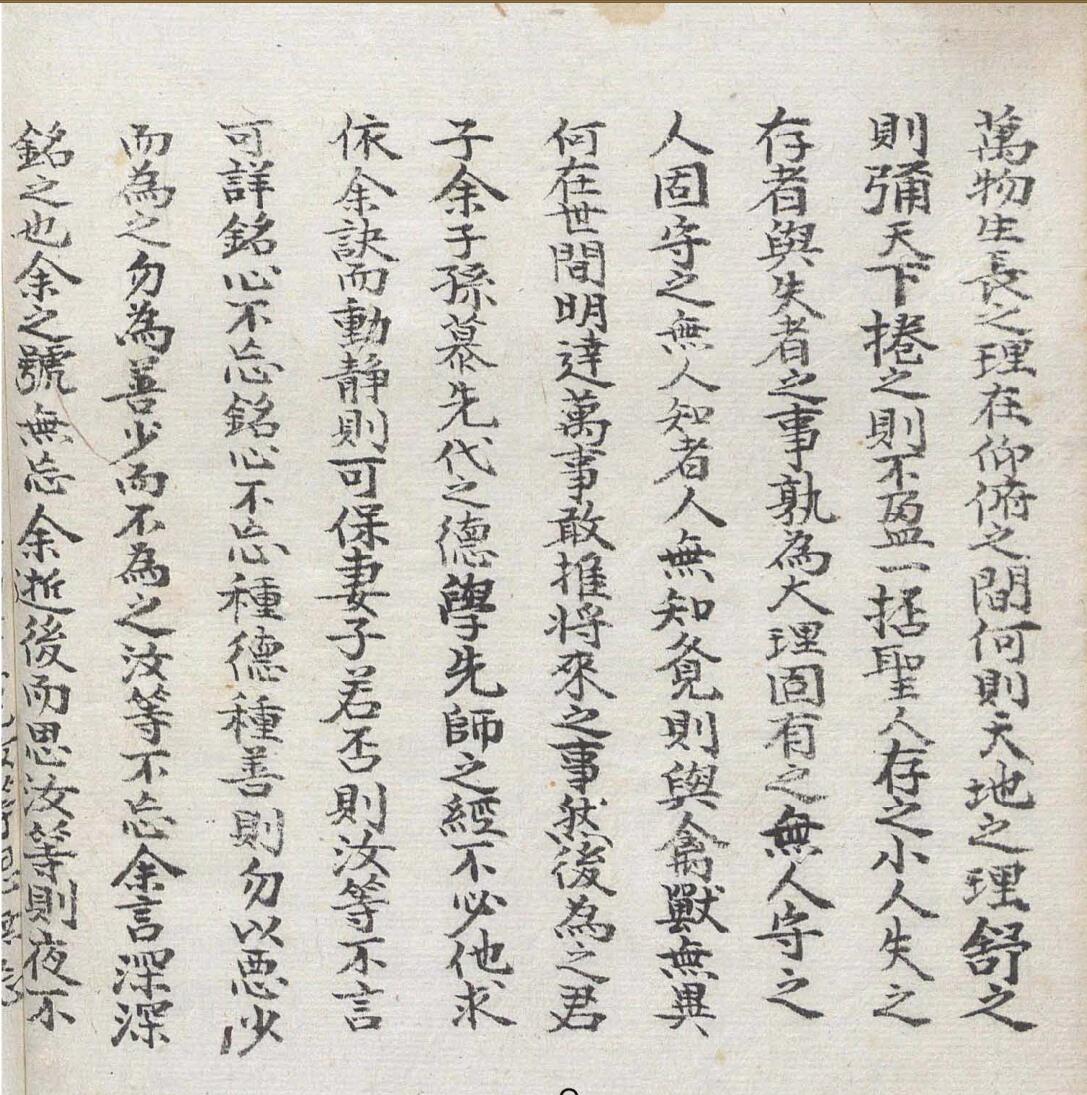 萬物生長之理在仰俯之間何則天地之理舒之
則彌天下捲之則不盈一括聖人存之小人失之
存者與失者之事孰為大理固有之無人守之
人固守之無人知者人無知覓則與禽獸無異
何在世間明達萬事敢推将來之事然後為之君
子余子孫慕先代之德學先師之經不必他求
依余訣而動静則可保妻子若否則汝等不言
可詳銘心不忘銘心不忘種德種善則勿以悪少
而為之勿為善少而不為之汝等不忘余言深深
銘之也余之號無忘余逝後而思汝等則夜不